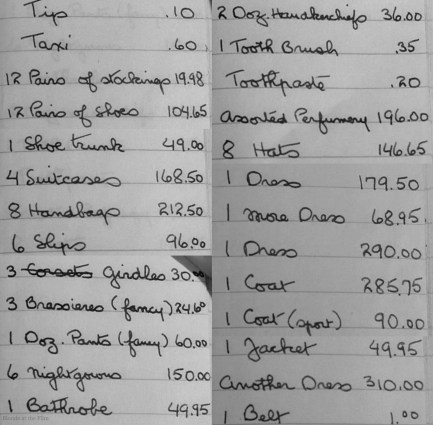 Tip .10
Taxi .60
12 Pairs of stockings 19.98
12 Pairs of Shoes 104.65
1 Shoe trunk 49.00
4 Suitcases 168.50
8 Handbags 212.50
6 Slips 96.00
3 Corsets Girdles 30.00
3 Brassieres (fancy) 24.60
1 Doz. Pants (fancy) 60.00
6 nightgowns 150.00
1 Bathrobe 49.95
2 Doz Handkerchiefs 36.00
1 Tooth Brush .35
Toothpaste .20
assorted Perfumery 196.00
8 Hats 146.65
1 Dress 179.50
1 more Dress 68.95
1 Dress 290.00
1 Coat 285.75
1 Coat (sport) 90.00
1 Jacket 49.95
another Dress 310.00
1 Belt 1.00